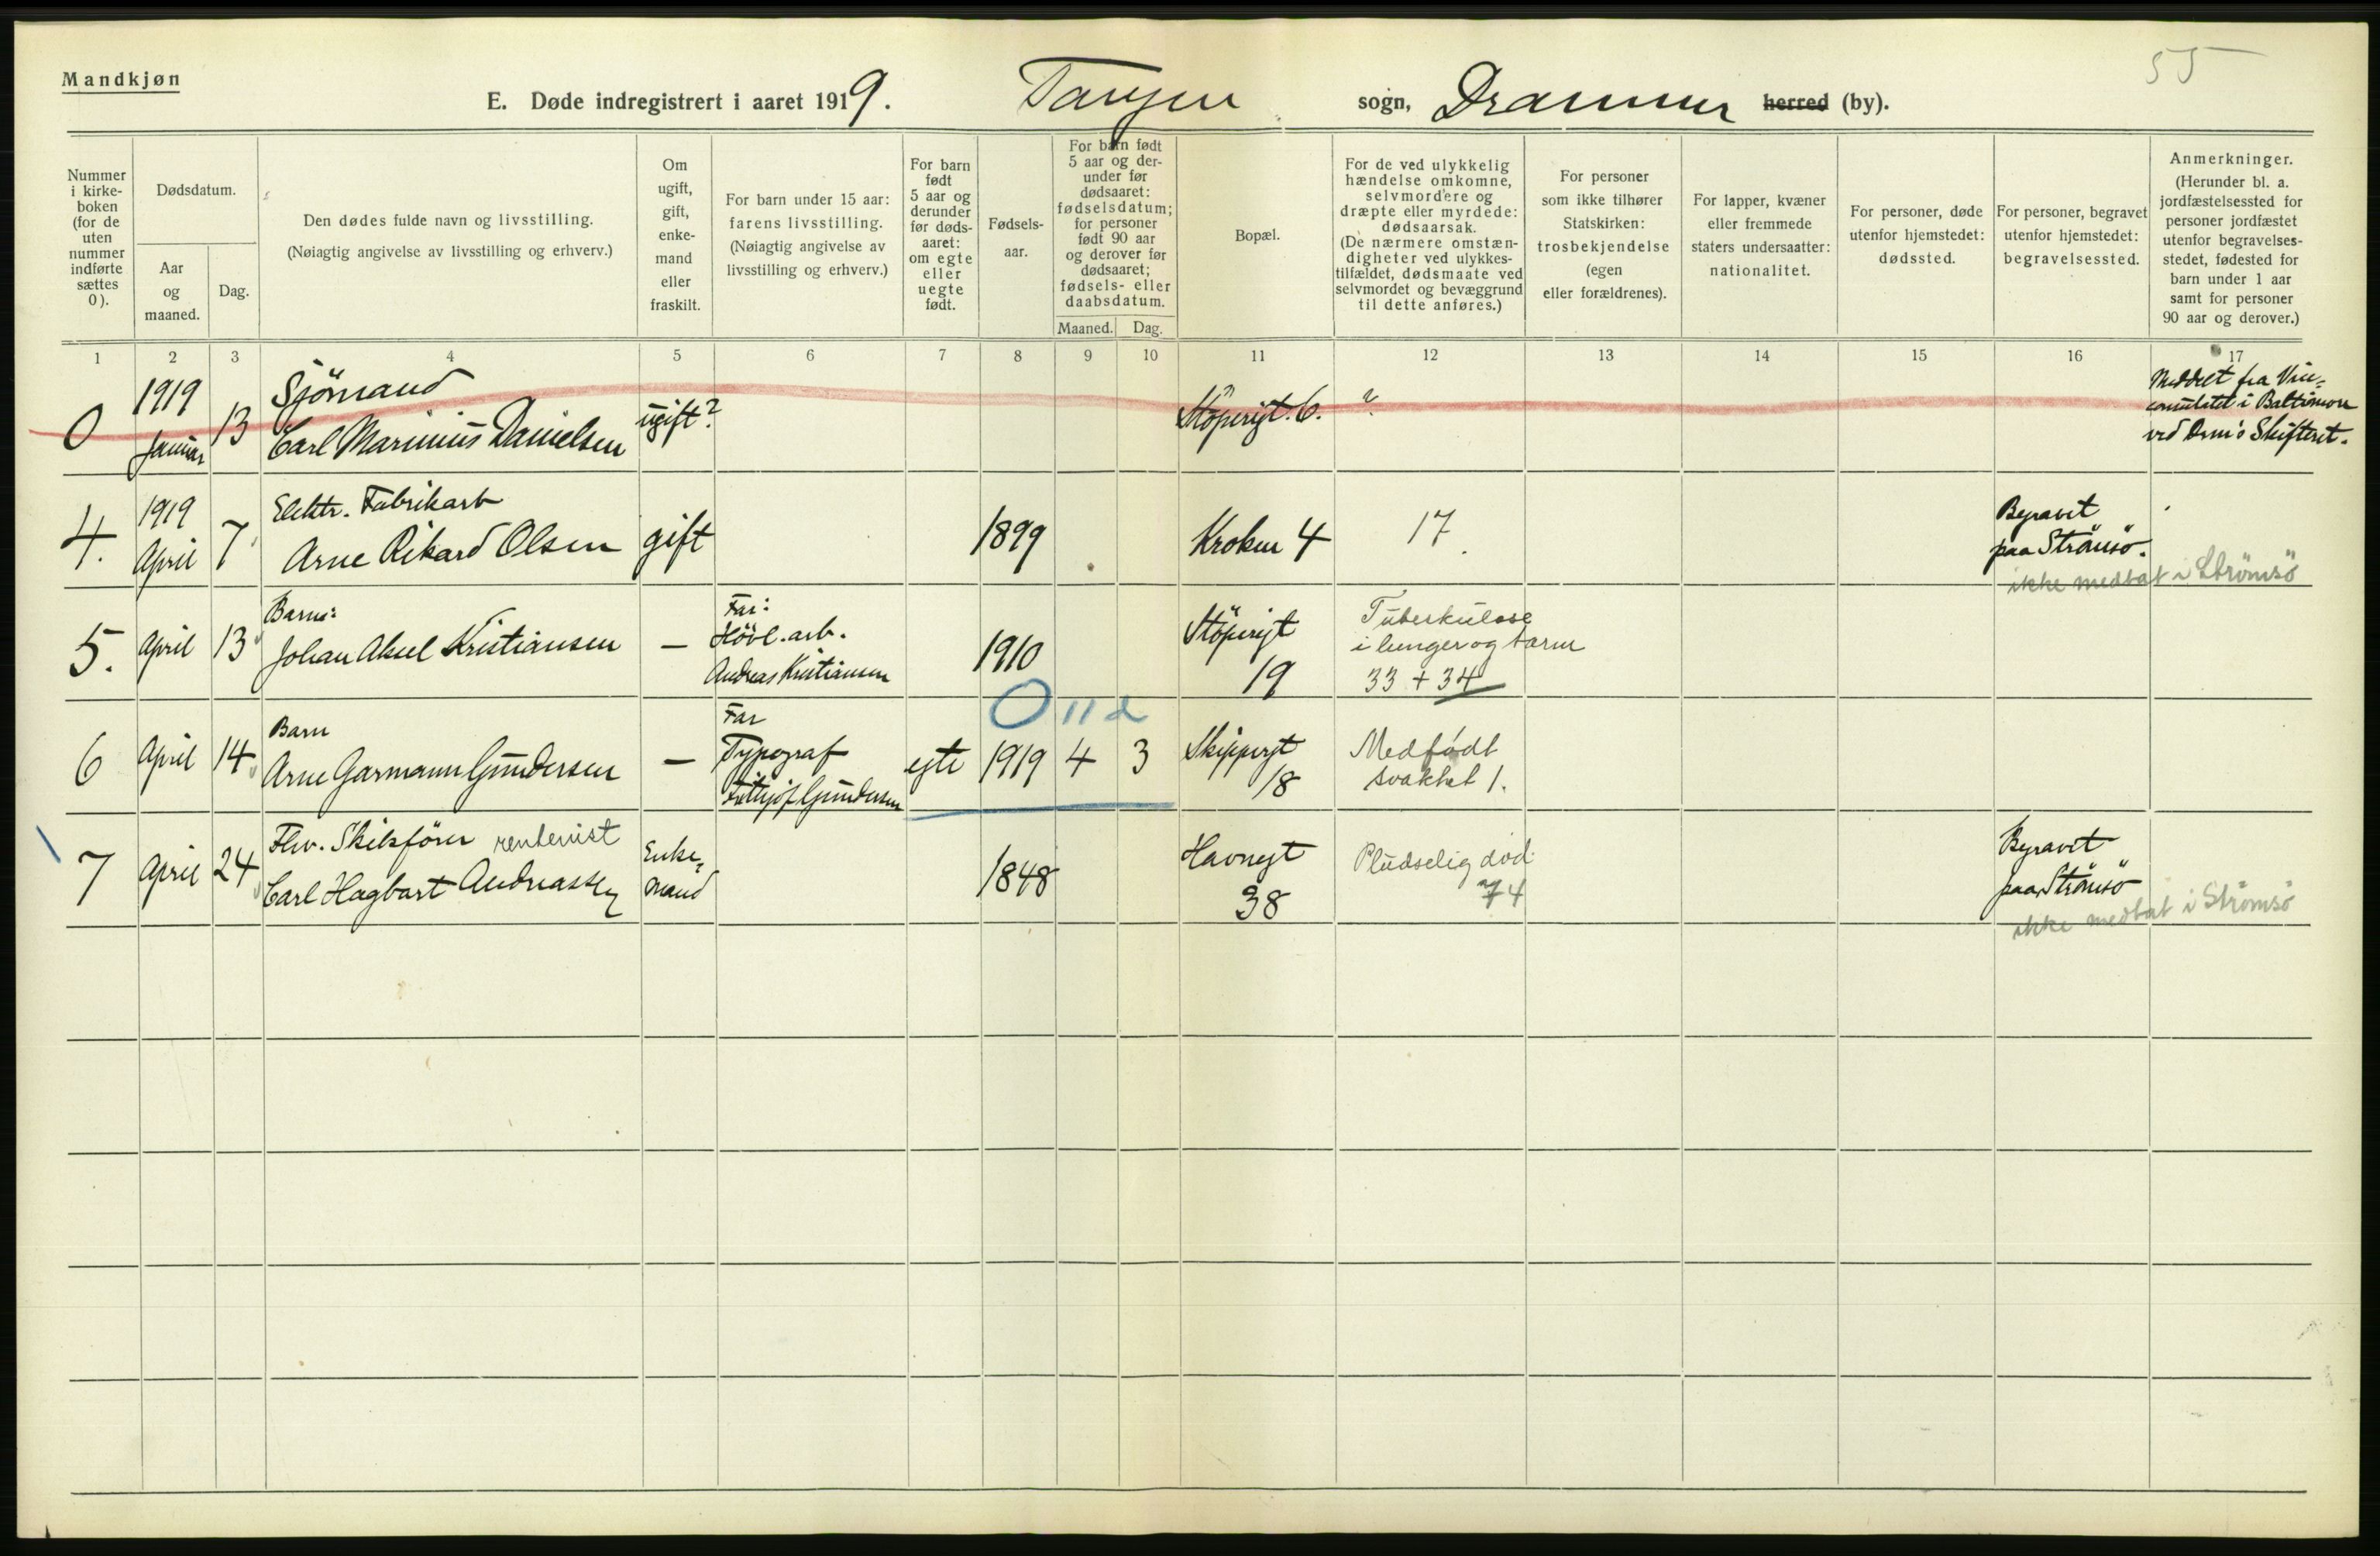 Mandkjøn
55
E. Døde indregistrert i aaret 1919. Tangen sogn, Drammen herred (by).
Nummer
i kirke-
boken
(for de
uten
nummer
indførte
sættes
0).
Dødsdatum.
Aar
og
maaned.
Dag.
Den dødes fulde navn og livsstilling.
(Nøiagtig angivelse av livsstilling og erhverv.)
Om
ugift,
gift,
enke-
mand
eller
fraskilt.
For barn under 15 aar:
farens livsstilling.
(Nøiagtig angivelse av
livsstilling og erhverv.)
For barn
født
5 aar og
derunder
før døds-
aaret:
om egte
eller
uegte
født.
Fødsels-
aar.
For barn født
5 aar og der-
under før
dødsaaret:
fødselsdatum;
for personer
født 90 aar
og derover før
dødsaaret;
fødsels- eller
daabsdatum.
Maaned. Dag.
Bopæl.
For de ved ulykkelig
hændelse omkomne,
selvmordere og
dræpte eller myrdede:
dødsaarsak.
(De nærmere omstæn-
digheter ved ulykkes-
tilfældet, dødsmaate ved
selvmordet og bevæggrund
til dette anføres.)
For personer
som ikke tilhører
Statskirken:
trosbekjendelse
(egen
eller forældrenes).
For lapper, kvæner
eller fremmede
staters undersaatter:
nationalitet.
For personer, døde
utenfor hjemstedet:
dødssted.
For personer, begravet
utenfor hjemstedet:
begravelsessted.
Anmerkninger.
(Herunder bl. a.
jordfæstelsessted for
personer jordfæstet
utenfor begravelses-
stedet, fødested for
barn under 1 aar
samt for personer
90 aar og derover.)
1 2 3 4 5 6 7 8 9 10 11 12 13 14 15 16 17
0
1919
Januar
13
Sjömand
Carl Marinius Danielsen
ugift?
Støperigt. 6.
?
Meddelt fra Vice-
consulatet i Baltimore
ved Drm's Skifteret.
4.
1919
April
7
Elektr. Fabrikarb
Arne Rikard Olsen
gift
1899
Kroken 4
17.
Begravet
paa Strömsö.
ikke medtat i Strömsö
5.
April
13
Barn:
Johan Aksel Kristiansen
—
Far:
Hövl. arb.
Andreas Kristiansen
1910
Støperigt
19
Tuberkulose
i lunger og tarm
33 + 34
0 11 d
6
April
14
Barn
Arne Garmann Gundersen
—
Far
Typograf
Fritjof Gundersen
egte
1919
4
3
Skippergt
18
Medfødt
svakhet 1.
7
April
24
Fhv. Skibsförer rentenist
Carl Hagbart Andreassen
Enke-
mand
1848
Havnegt
38
Pludselig død
74
Begravet
paa Strömsö
ikke medtat i Strömsö